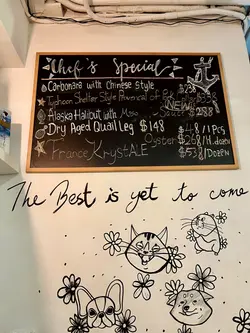 Chef's Special
Carbonara with Chinese Style $238
Typhoon Shelter Style $338
NEW!
Alaska Halibut with Sauce $288
Dry Aged Quail Leg $148
France Krystale Oyster
$48/1Pcs
$268/H.dozen
$538/Dozen
The Best is yet to come